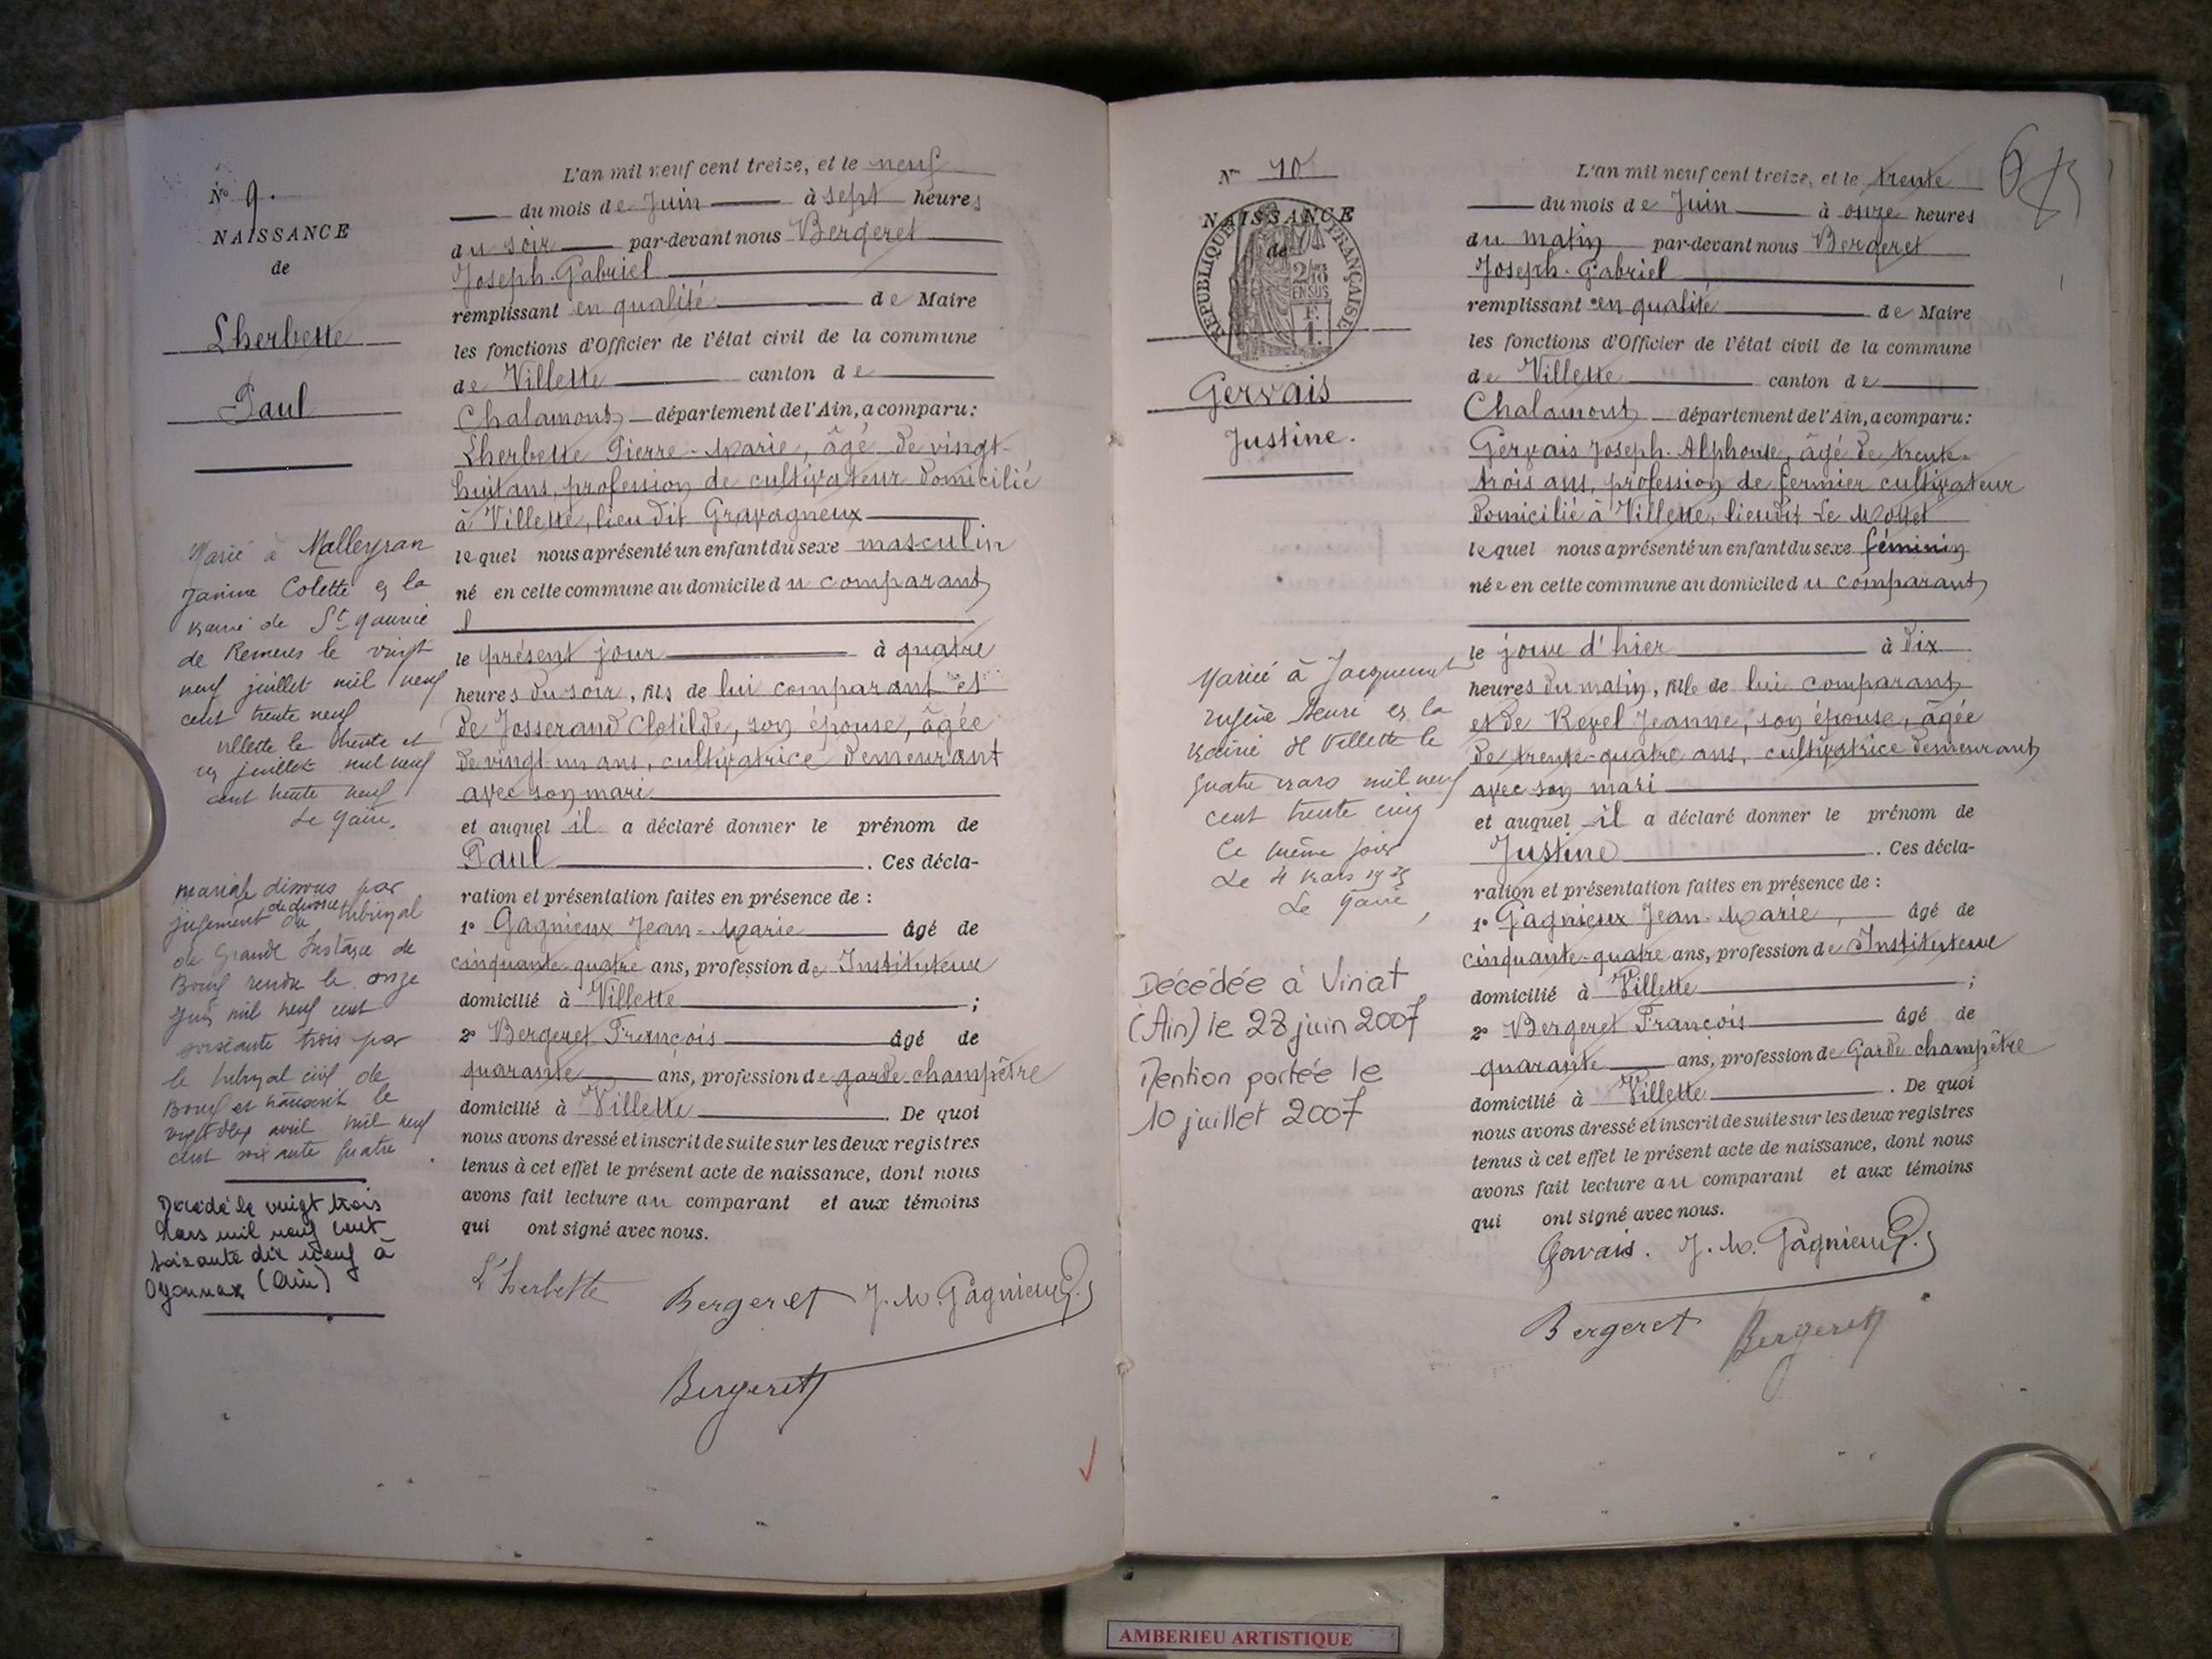 N° 9.
NAISSANCE
de
Lherbette
Paul
Marié à Malleyran
Janine Colette en la
mairie de St Maurice
de Remens le vingt
neuf juillet mil neuf
cent trente neuf
Villette le trente et
un juillet mil neuf
cent trente neuf
Le Maire,
mariage dissous par
jugement de divorce du tribunal
de Grande Instance de
Bourg rendu le onze
juin mil neuf cent
soixante trois par
le tribunal civil de
Bourg et transcrit le
vingt deux avril mil neuf
cent soixante quatre
Décédé le vingt trois
Mars mil neuf cent
soixante dix neuf à
Oyonnax (Ain)
L'an mil neuf cent treize, et le neuf
du mois de Juin à sept heures
du soir par-devant nous Bergeret
Joseph-Gabriel
remplissant en qualité de Maire
les fonctions d'Officier de l'état civil de la commune
de Villette canton de
Chalamont département de l'Ain, a comparu :
Lherbette Pierre-Marie, âgé de vingt-
huit ans, profession de cultivateur domicilié
à Villette, lieu dit Gravagneux
lequel nous a présenté un enfant du sexe masculin
né en cette commune au domicile du comparant
le présent jour à quatre
heures du soir, fils de lui comparant et
de Josserand Clotilde, son épouse, âgée
de vingt-un ans, cultivatrice demeurant
avec son mari
et auquel il a déclaré donner le prénom de
Paul. Ces décla-
ration et présentation faites en présence de :
1° Gagnieux Jean-Marie âgé de
cinquante-quatre ans, profession de Instituteur
domicilié à Villette ;
2° Bergeret François âgé de
quarante ans, profession de garde-champêtre
domicilié à Villette. De quoi
nous avons dressé et inscrit de suite sur les deux registres
tenus à cet effet le présent acte de naissance, dont nous
avons fait lecture au comparant et aux témoins
qui ont signé avec nous.
L'herbette Bergeret J. M. Gagnieux
Bergeret
N° 10
NAISSANCE
de
RÉPUBLIQUE FRANÇAISE
2/10
EN SUS
F.
1.
Gervais
Justine.
Mariée à Jacquemet
Eugène Henri en la
mairie de Villette le
quatre mars mil neuf
cent trente cinq
Ce même jour
Le 4 Mars 1935
Le Maire,
Décédée à Viriat
(Ain) le 28 juin 2007
Mention portée le
10 juillet 2007
L'an mil neuf cent treize, et le trente
du mois de Juin à onze heures
du matin par-devant nous Bergeret
Joseph-Gabriel
remplissant en qualité de Maire
les fonctions d'Officier de l'état civil de la commune
de Villette canton de
Chalamont département de l'Ain, a comparu :
Gervais Joseph-Alphonse, âgé de trente-
trois ans, profession de fermier cultivateur
domicilié à Villette, lieu dit Le Mollet
lequel nous a présenté un enfant du sexe féminin
née en cette commune au domicile du comparant
le jour d'hier à dix
heures du matin, fille de lui comparant
et de Revel Jeanne, son épouse, âgée
de trente-quatre ans, cultivatrice demeurant
avec son mari
et auquel il a déclaré donner le prénom de
Justine. Ces décla-
ration et présentation faites en présence de :
1° Gagnieux Jean-Marie, âgé de
cinquante-quatre ans, profession de Instituteur
domicilié à Villette ;
2° Bergeret François âgé de
quarante ans, profession de Garde champêtre
domicilié à Villette. De quoi
nous avons dressé et inscrit de suite sur les deux registres
tenus à cet effet le présent acte de naissance, dont nous
avons fait lecture au comparant et aux témoins
qui ont signé avec nous.
Gervais. J. M. Gagnieux
Bergeret Bergeret
AMBERIEU ARTISTIQUE